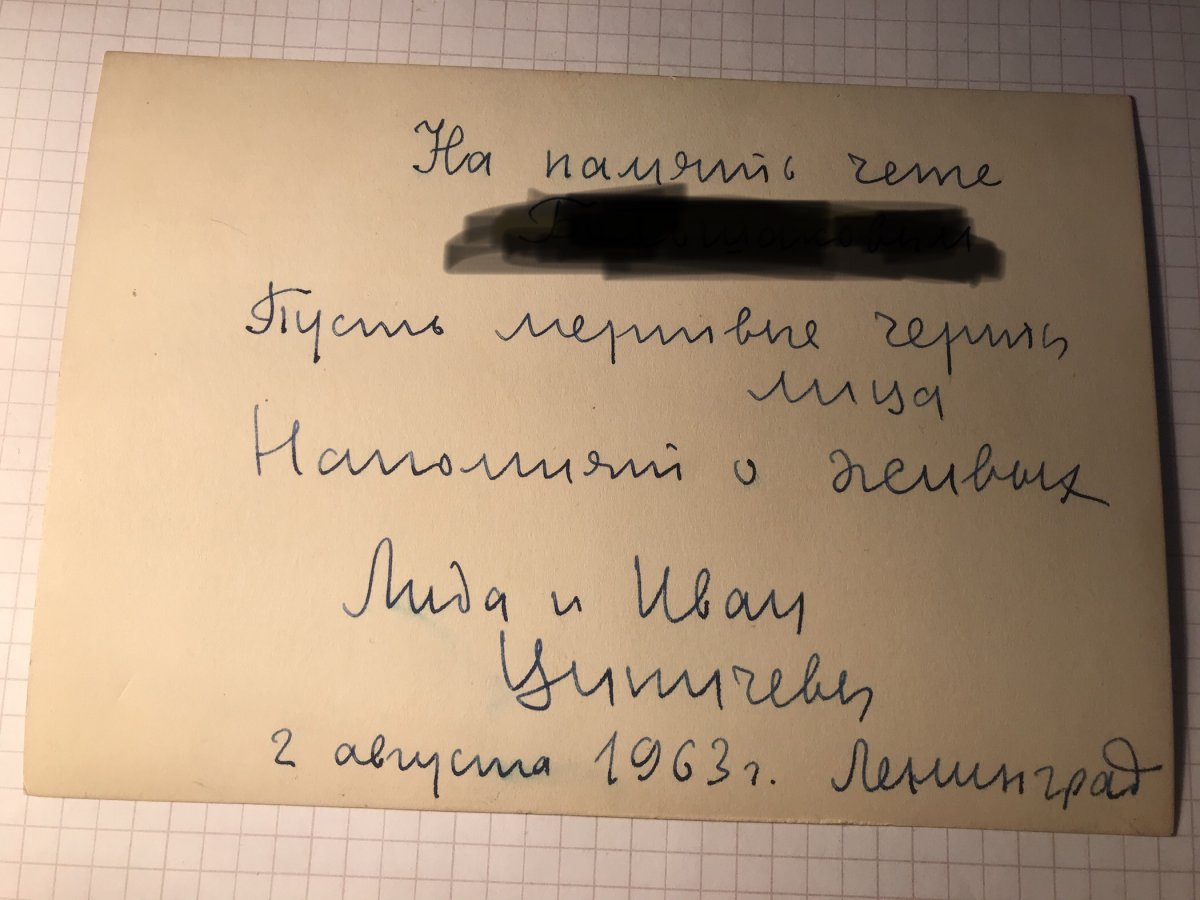 На память чете
Пусть мертвые черты
лица
Напомнят о живых
Лида и Иван
2 августа 1963 г. Ленинград